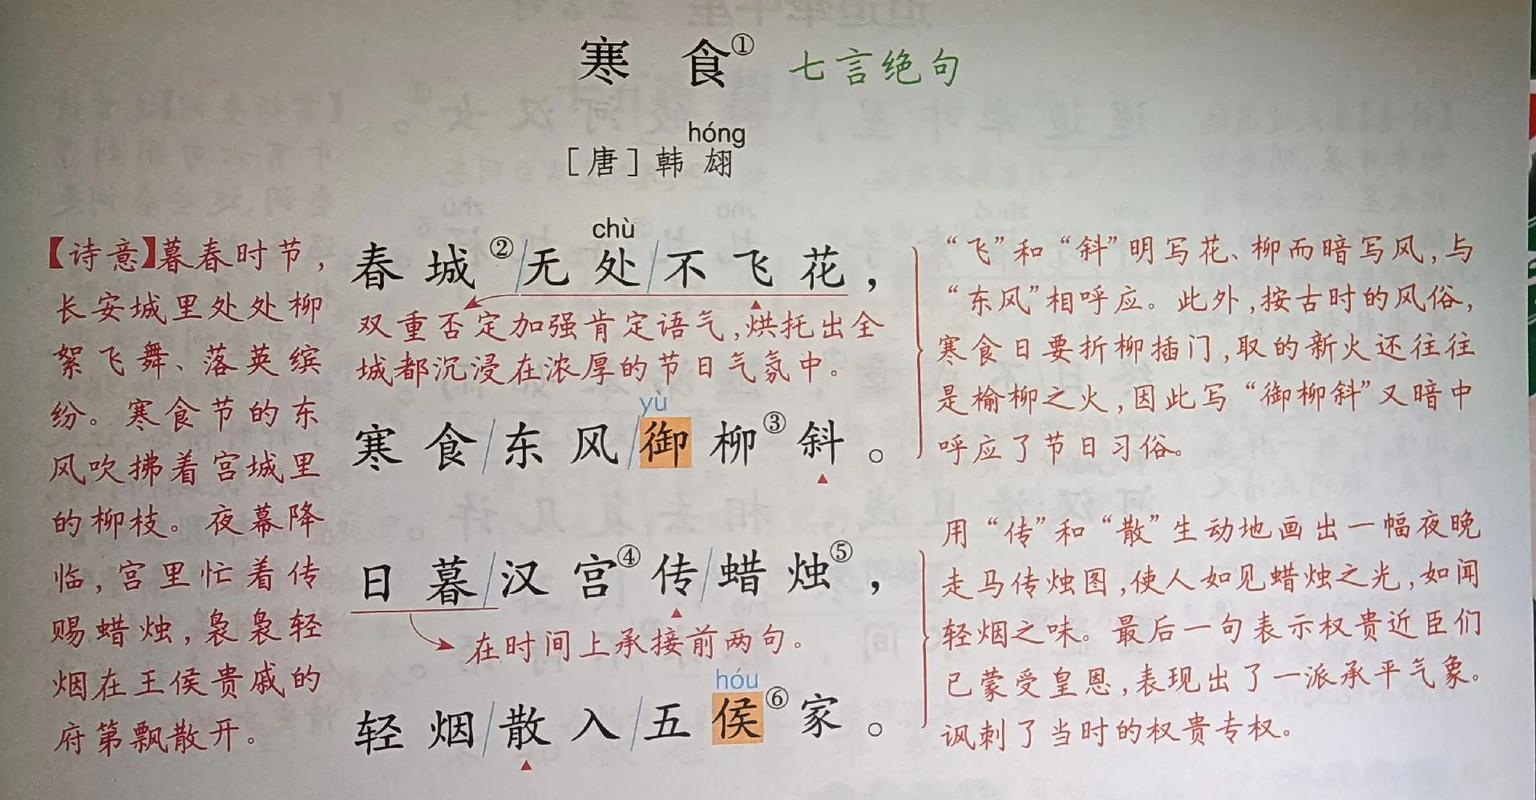 寒食① 七言绝句
hóng
[唐]韩翃
【诗意】暮春时节，
长安城里处处柳
絮飞舞、落英缤
纷。寒食节的东
风吹拂着宫城里
的柳枝。夜幕降
临，宫里忙着传
赐蜡烛，袅袅轻
烟在王侯贵戚的
府第飘散开。
chù
春城②/无处/不飞花，
双重否定加强肯定语气，烘托出全
城都沉浸在浓厚的节日气氛中。
yù
寒食/东风/御柳③斜。
日暮/汉宫④传/蜡烛⑤，
在时间上承接前两句。
hóu
轻烟/散入/五侯⑥家。
“飞”和“斜”明写花、柳而暗写风，与
“东风”相呼应。此外，按古时的风俗，
寒食日要折柳插门，取的新火还往往
是榆柳之火，因此写“御柳斜”又暗中
呼应了节日习俗。
用“传”和“散”生动地画出一幅夜晚
走马传烛图，使人如见蜡烛之光，如闻
轻烟之味。最后一句表示权贵近臣们
已蒙受皇恩，表现出了一派承平气象。
讽刺了当时的权贵专权。